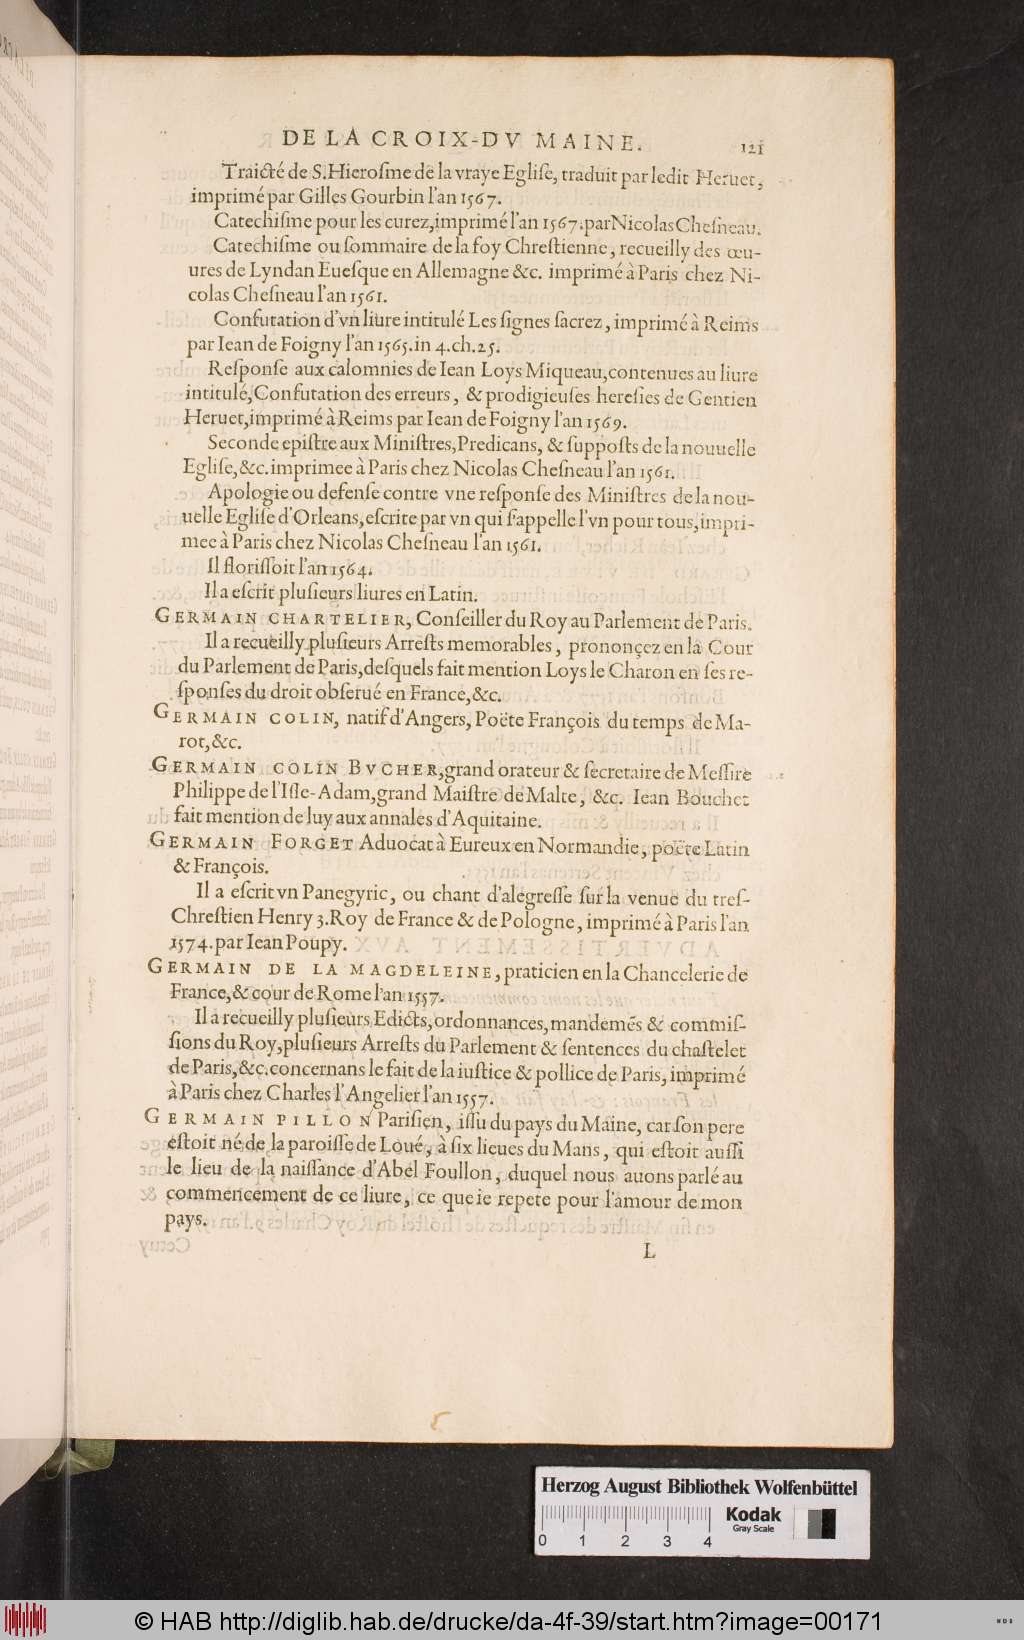 DE LA CROIX-DV MAINE. 121
Traicté de S. Hierosme de la vraye Eglise, traduit par ledit Heruet,
imprimé par Gilles Gourbin l'an 1567.
Catechisme pour les curez, imprimé l'an 1567. par Nicolas Chesneau.
Catechisme ou sommaire de la foy Chrestienne, recueilly des œu-
ures de Lyndan Euesque en Allemagne &c. imprimé à Paris chez Ni-
colas Chesneau l'an 1561.
Confutation d'vn liure intitulé Les signes sacrez, imprimé à Reims
par Iean de Foigny l'an 1565. in 4. ch. 25.
Response aux calomnies de Iean Loys Miqueau, contenues au liure
intitulé, Confutation des erreurs, & prodigieuses heresies de Gentien
Heruet, imprimé à Reims par Iean de Foigny l'an 1569.
Seconde epistre aux Ministres, Predicans, & supposts de la nouuelle
Eglise, &c. imprimee à Paris chez Nicolas Chesneau l'an 1561.
Apologie ou defense contre vne response des Ministres de la nou-
uelle Eglise d'Orleans, escrite par vn qui s'appelle l'vn pour tous, impri-
mee à Paris chez Nicolas Chesneau l'an 1561.
Il florissoit l'an 1564.
Il a escrit plusieurs liures en Latin.
GERMAIN CHARTELIER, Conseiller du Roy au Parlement de Paris.
Il a recueilly plusieurs Arrests memorables, prononçez en la Cour
du Parlement de Paris, desquels fait mention Loys le Charon en ses re-
sponses du droit obserué en France, &c.
GERMAIN COLIN, natif d'Angers, Poëte François du temps de Ma-
rot, &c.
GERMAIN COLIN BVCHER, grand orateur & secretaire de Messire
Philippe de l'Isle-Adam, grand Maistre de Malte, &c. Iean Bouchet
fait mention de luy aux annales d'Aquitaine.
GERMAIN FORGET Aduocat à Eureux en Normandie, poëte Latin
& François.
Il a escrit vn Panegyric, ou chant d'alegresse sur la venue du tres-
Chrestien Henry 3. Roy de France & de Pologne, imprimé à Paris l'an
1574. par Iean Poupy.
GERMAIN DE LA MAGDELEINE, praticien en la Chancelerie de
France, & cour de Rome l'an 1557.
Il a recueilly plusieurs Edicts, ordonnances, mandemēs & commis-
sions du Roy, plusieurs Arrests du Parlement & sentences du chastelet
de Paris, &c. concernans le fait de la iustice & pollice de Paris, imprimé
à Paris chez Charles l'Angelier l'an 1557.
GERMAIN PILLON Parisien, issu du pays du Maine, car son pere
estoit né de la paroisse de Loué, à six lieues du Mans, qui estoit aussi
le lieu de la naissance d'Abel Foullon, duquel nous auons parlé au
commencement de ce liure, ce que ie repete pour l'amour de mon
pays.
L
Herzog August Bibliothek Wolfenbüttel
Kodak
Gray Scale
0 1 2 3 4
© HAB http://diglib.hab.de/drucke/da-4f-39/start.htm?image=00171